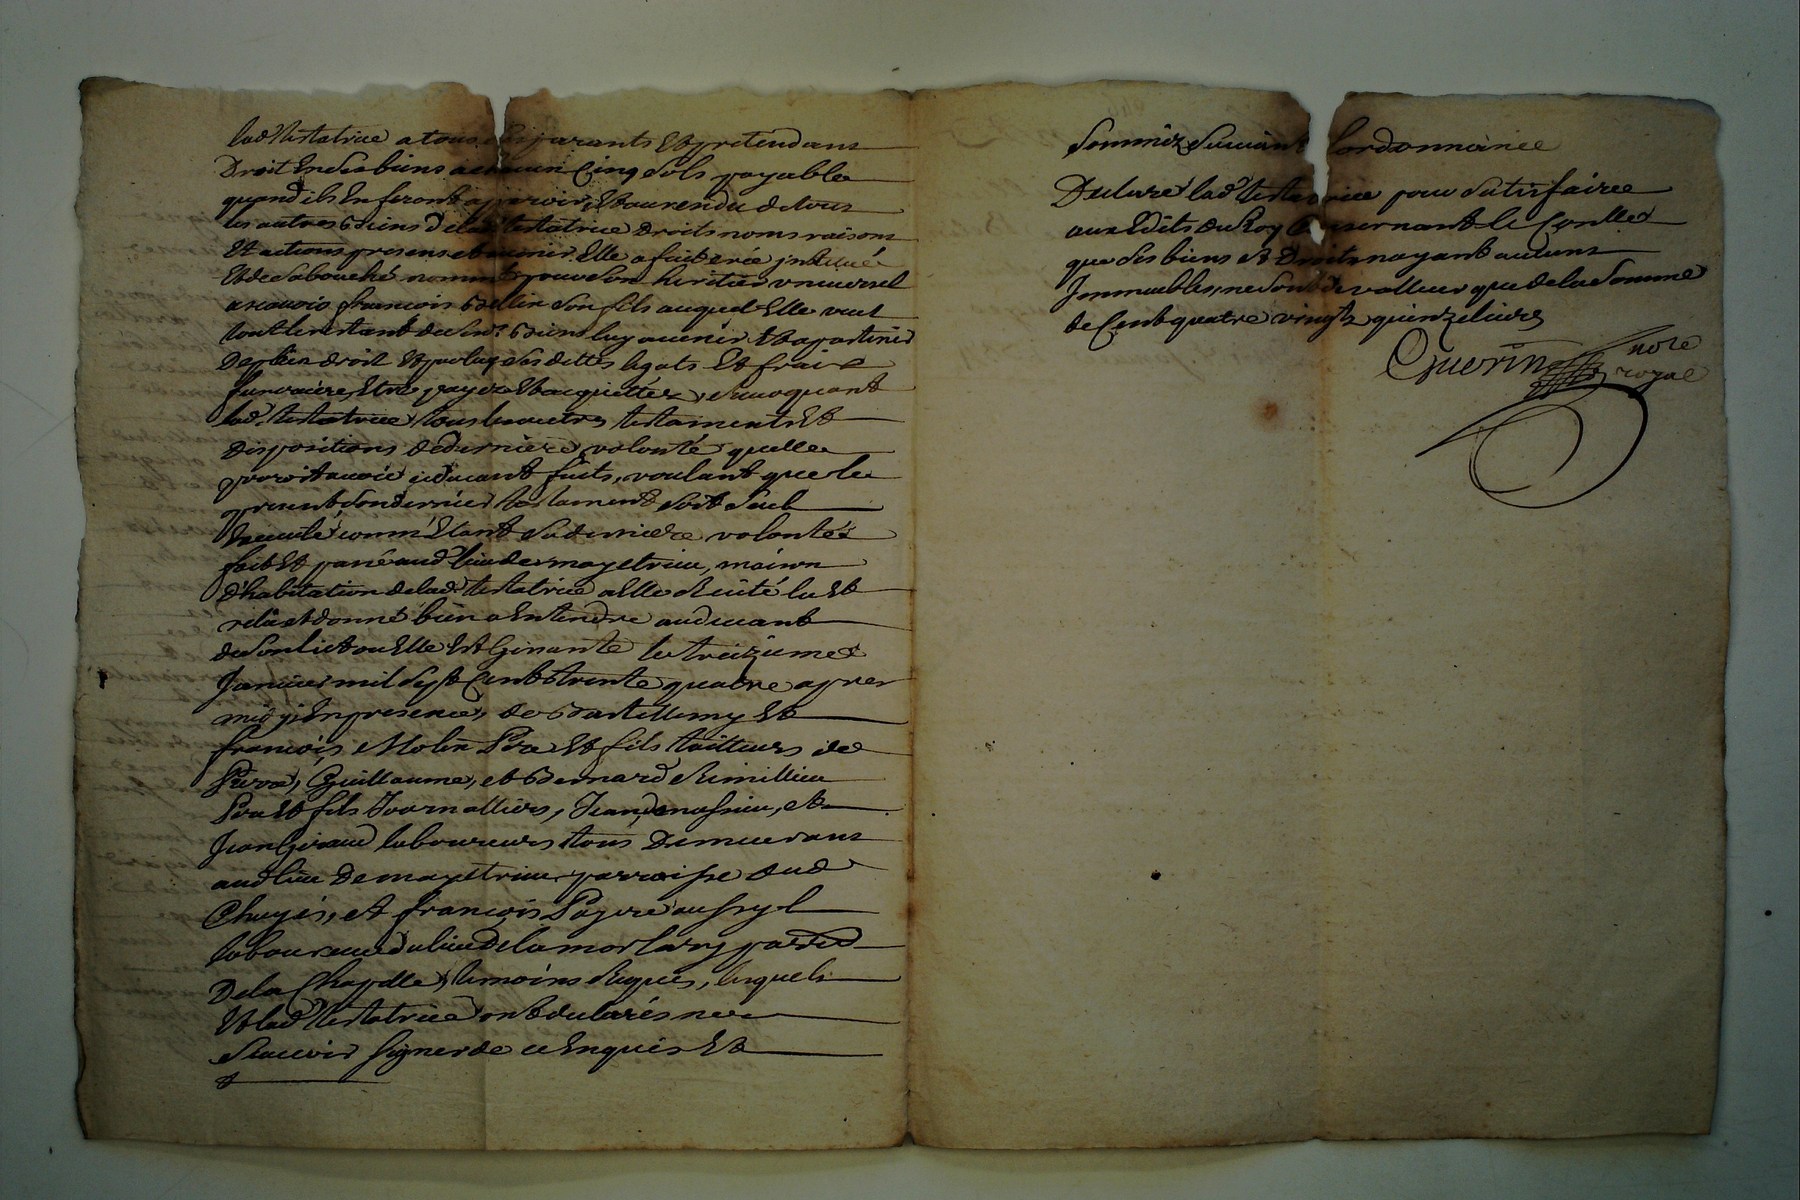 lad testatrice a tous ses parants et pretendans
Droit en ses biens a chacun Cinq sols payable
quand ils En feront apparoir, Et au rendu de tous
les autres Biens de lad testatrice droits noms raisons
Et actions presens et avenir Elle a fait crée institué
Et de sa bouche nommé pour son heritier universel
a scavoir francois Bellin son fils auquel Elle veut
tout le restant de sesd Biens luy avenir Et apartenir
De plein droit Et par luy ses dettes legats Et frais
funeraires Etre payés Et acquittez, revoquant
lad testatrice tous les autres testaments Et
Dispositions de derniere volonté quelle
pourroit avoir cy devant faits, voulant que le
present son dernier testament soit seul
Executé comm'Etant sa derniere volonté
fait Et passé aud lieu de mayetrieu, maison
d'habitation de lad testatrice a Elle recité lu Et
relu Et donné bien a Entendre au devant
de son lict ou Elle Est Gisante le treizieme
Janvier mil Sept Cent trente quatre apres
midy En presence de Bartellemy Et
francois Molin Pere Et fils tailleurs de
Pierre, Guillaume, et Bernard Rimillieu
Pere Et fils Journalliers, Jean demassieu, et
Jean Giraud laboureurs tous Demeurans
aud lieu De mayetrieu parroisse dud
Chuyes, et francois Payre aussy
laboureur du lieu de la morlary parr
De la Chapelle temoins Requis, lesquels
Et lad testatrice ont declarés ne
Scavoir signer de ce Enquis Et
Sommez Suivant l'ordonnance
Declaré lad testatrice pour Satisfaire
aux Edits du Roy Concernant le Conlle
que ses biens et Droits nayant aucuns
Immeubles, ne sont de valleur que de la Somme
de Cent quatre vingts quinze livres
Guerin nore
royal